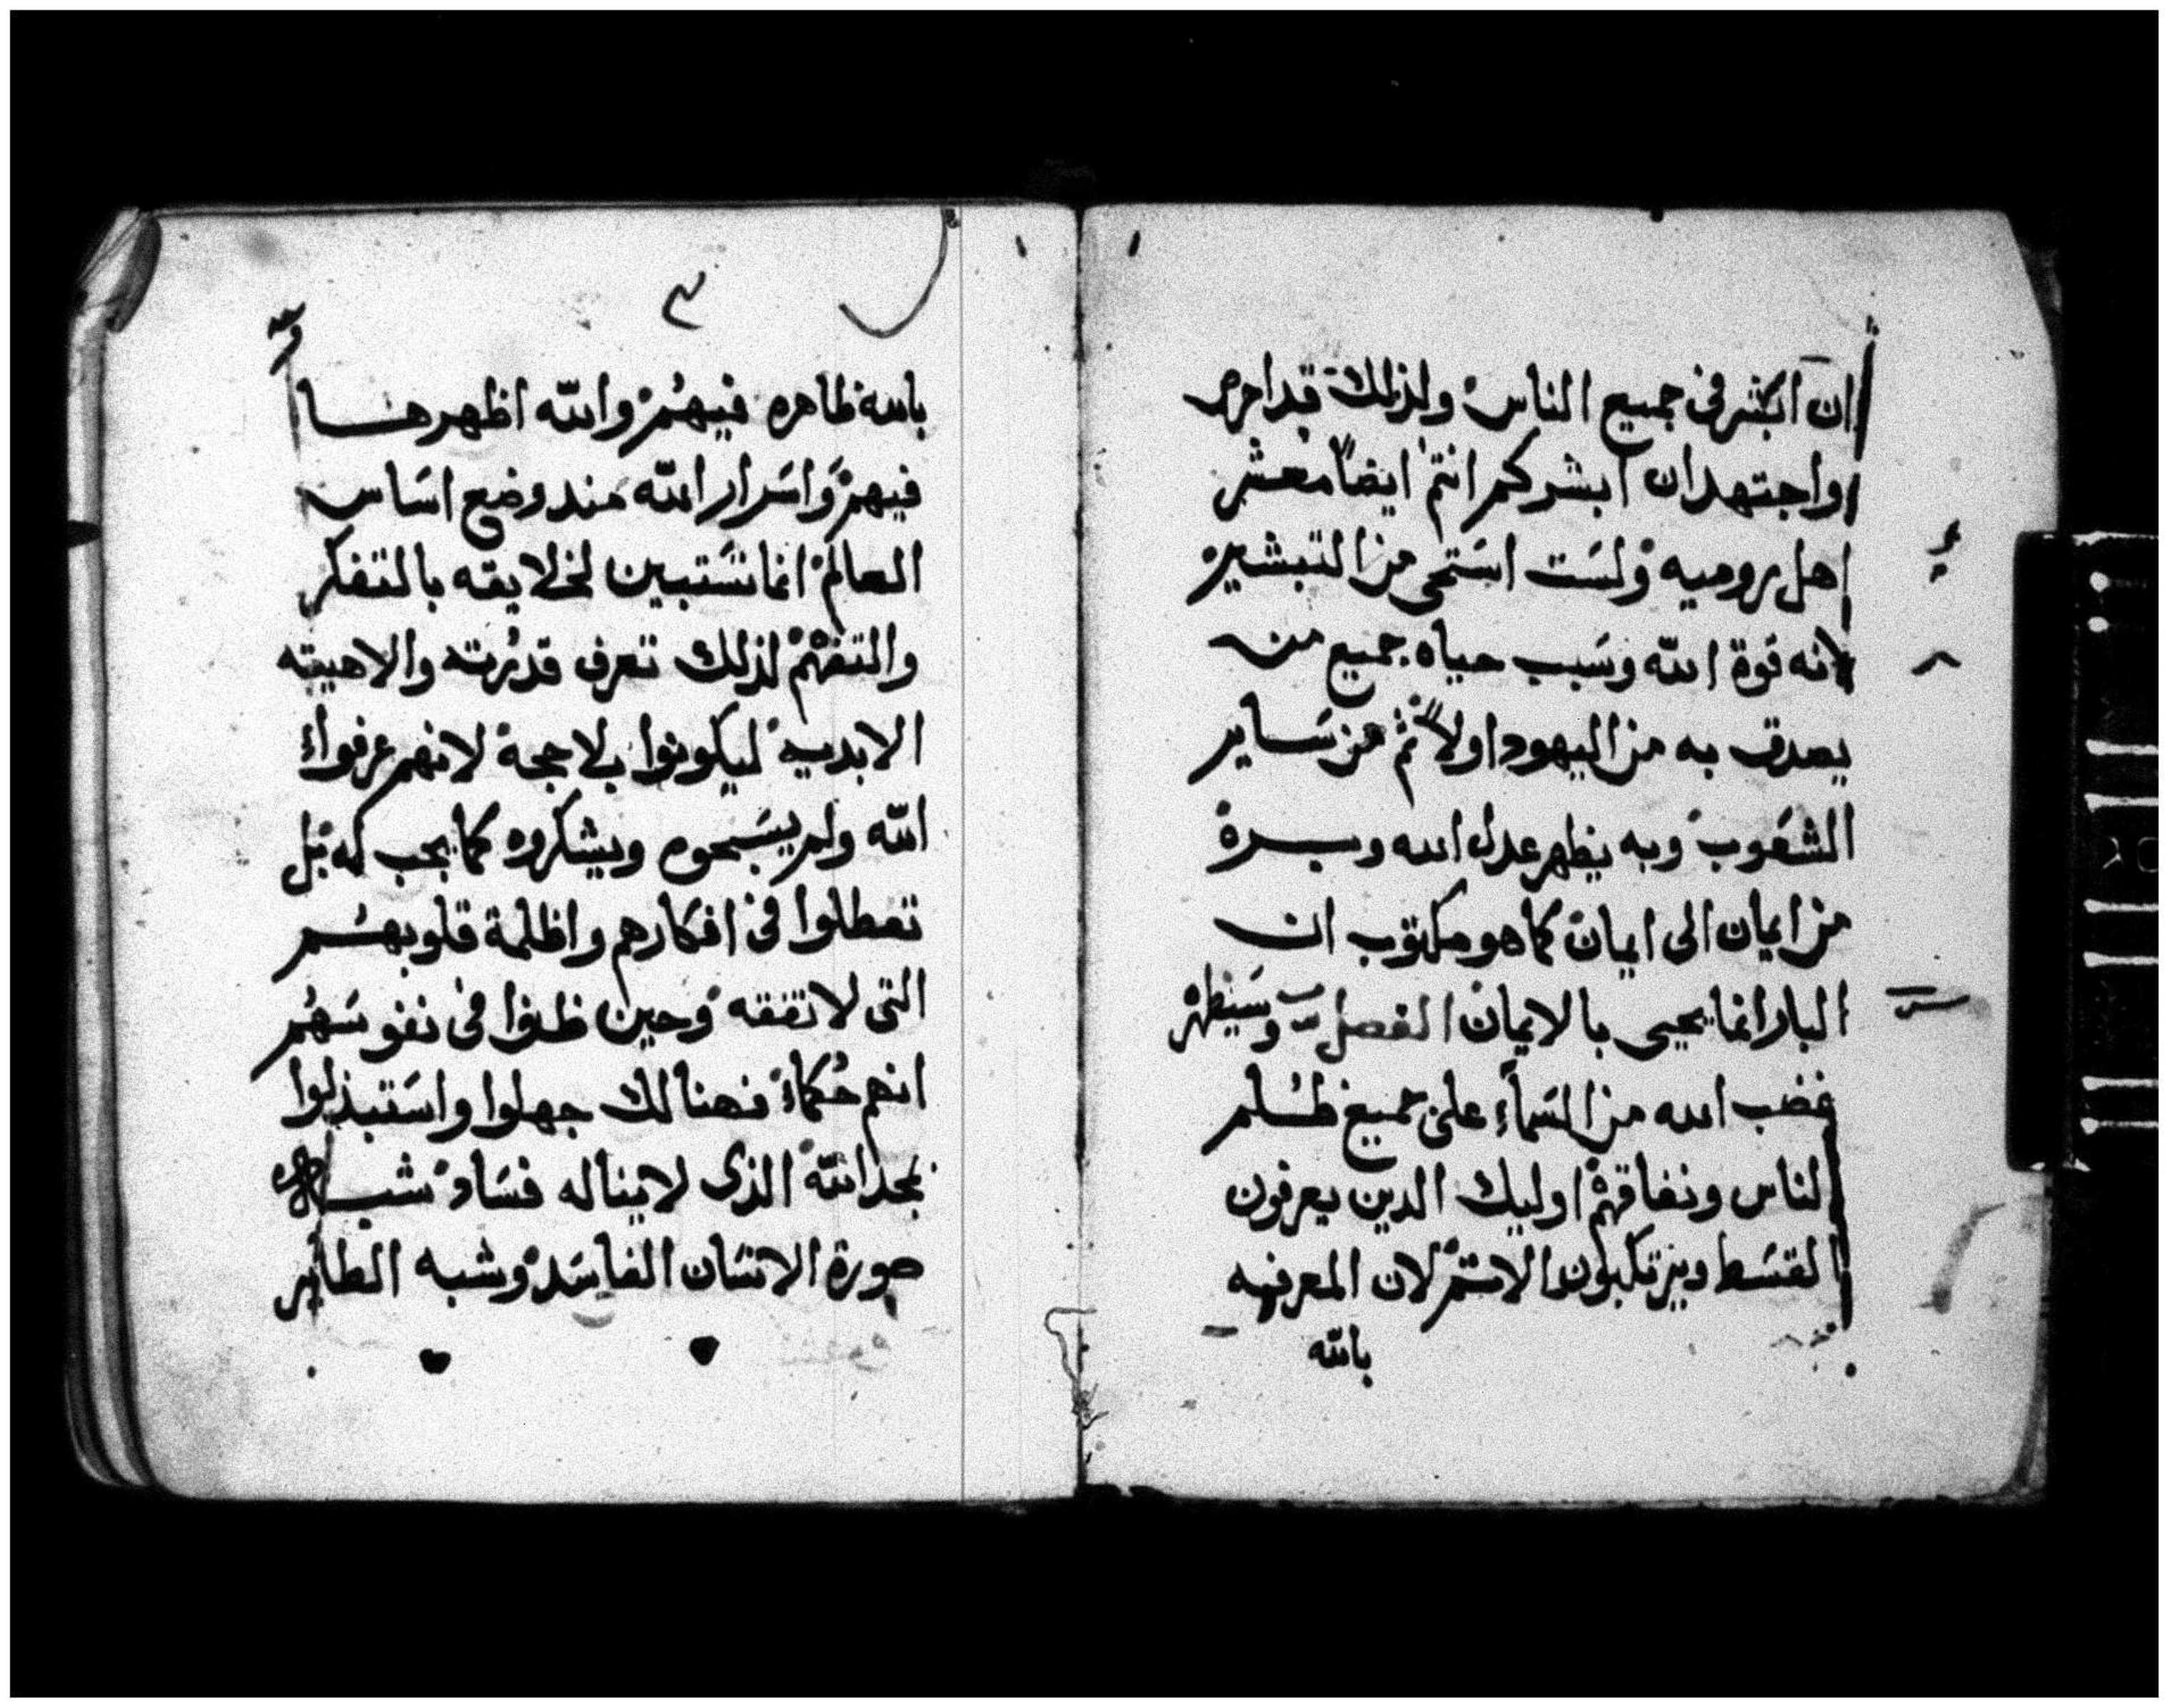 ان ابشر فى جميع الناس ولذلك قد احرص
واجتهد ان ابشركم انتم ايضاً معشر
اهل روميه ولست استحى من التبشير
لانه قوة الله وسبب حياه جميع من
يصدق به من اليهود اولاً ثم من ساير
الشعوب وبه يظهر عدل الله وبره
من ايمان الى ايمان كما هو مكتوب ان
البار انما يحيى بالايمان الفصل وسيظهر
غضب الله من السماء على جميع ظلم
الناس ونفاقهم اوليك الدين يعرفون
القسط ويرتكبون الاثم لان المعرفه
بالله
٣
بالله ظاهره فيهم والله اظهرها
فيهم واسرار الله مند وضع اساس
العالم انما تستبين لخلايقه بالتفكر
والتفهم لذلك تعرف قدرته والاهيته
الابديه ليكونوا بلا حجة لانهم عرفوا
الله ولم يسبحوه ويشكروه كما يجب له بل
تعطلوا فى افكارهم واظلمة قلوبهم
التى لا تفقه وحين ظنوا فى نفوسهم
انهم حكماء فهنالك جهلوا واستبدلوا
بمجد الله الذى لا يناله فساد شبه
صورة الانسان الفاسد وشبه الطاير